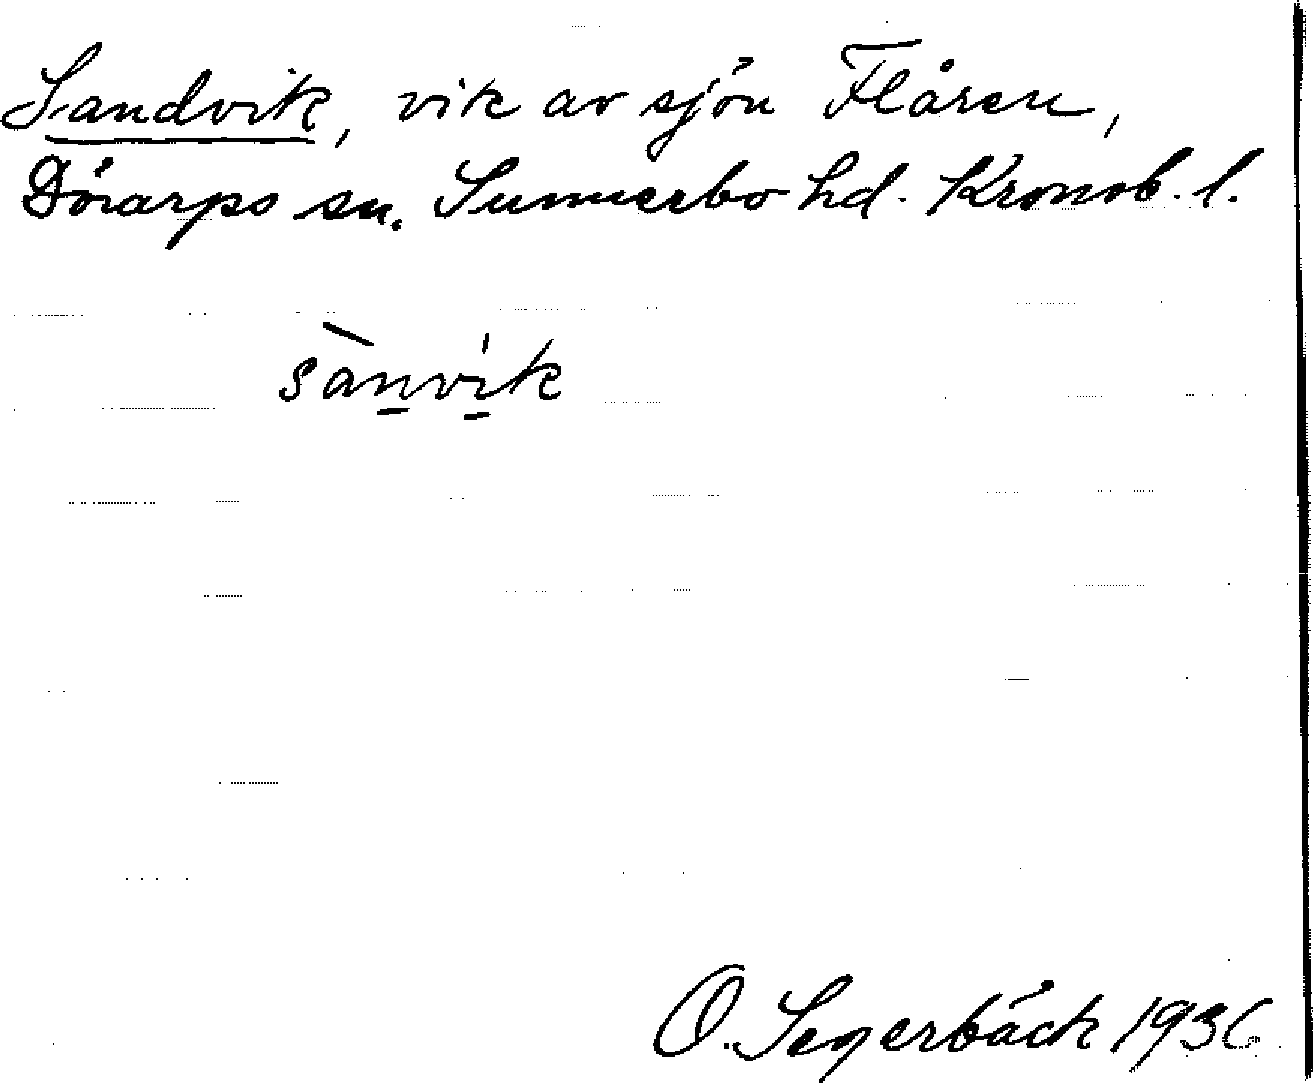 Sandvik, vik av sjön Flåren,
Dörarps sn. Sunnerbo hd. Kronob. l.
sànvik
O. Segerbäck 1936